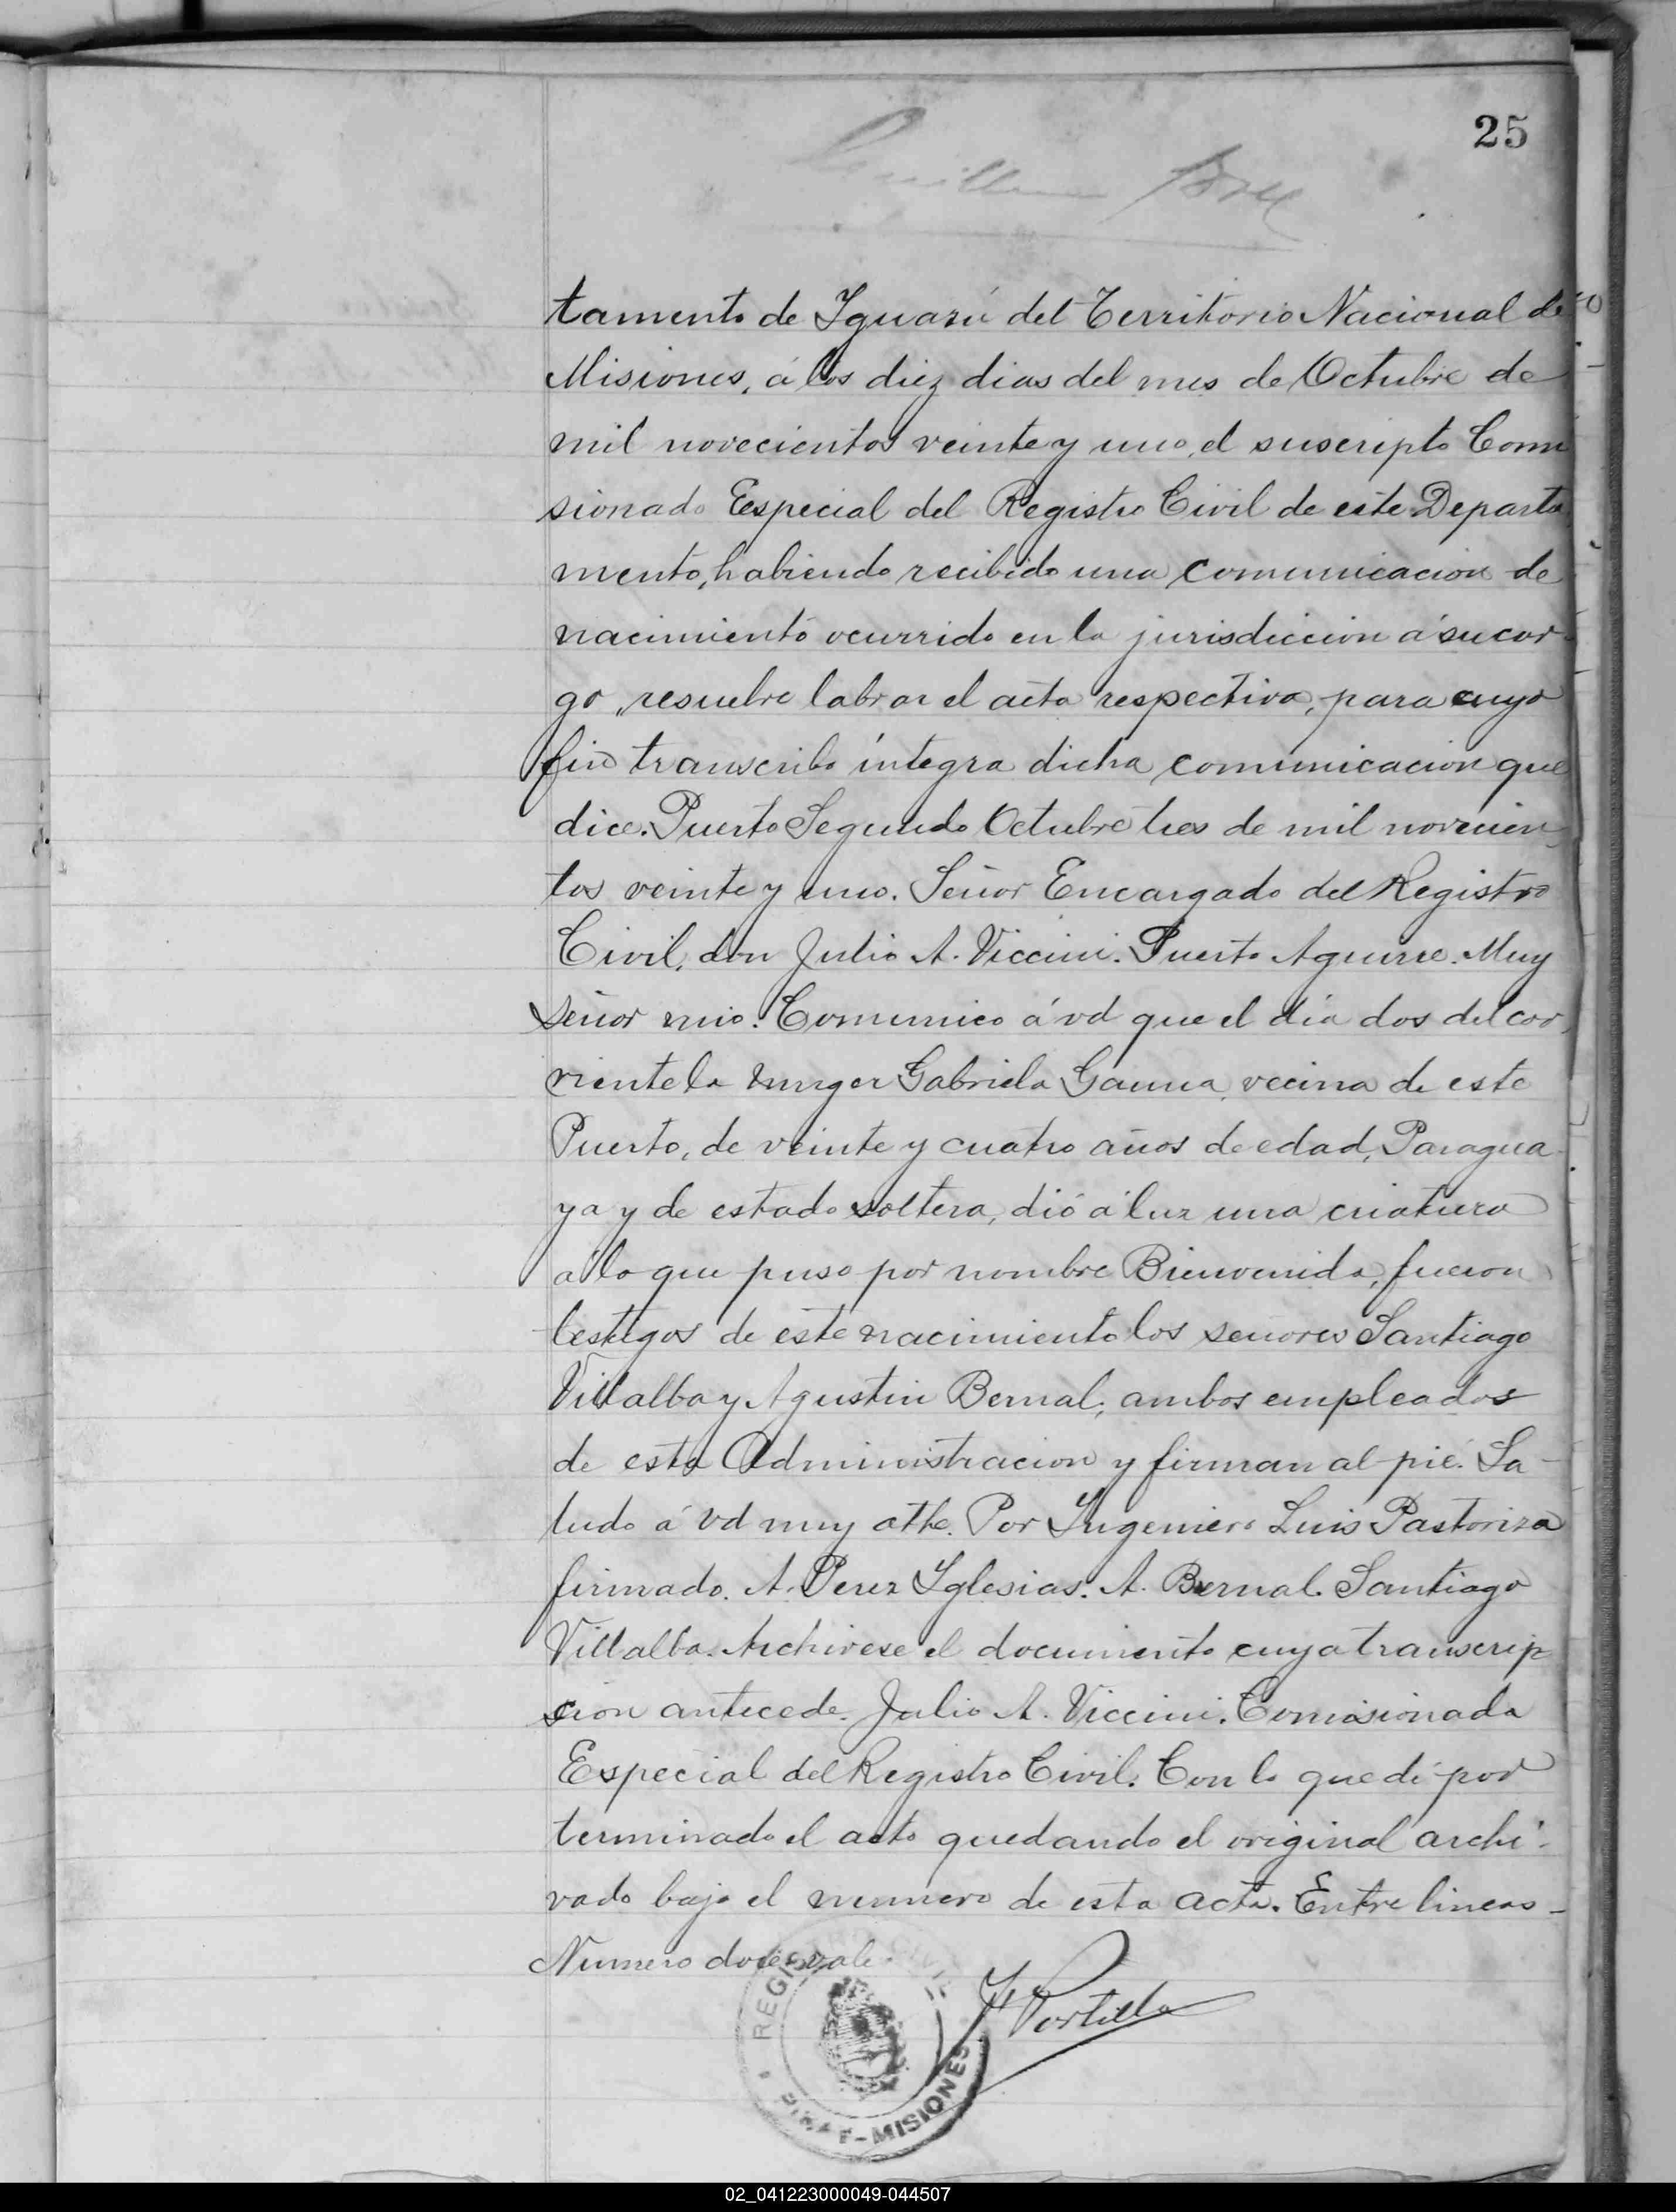 25
tamento de Iguazú del Territorio Nacional de
Misiones, á los diez dias del mes de Octubre de
mil novecientos veinte y uno, el suscripto Comi
sionado Especial del Registro Civil de este Departa
mento, habiendo recibido una comunicacion de
nacimiento ocurrido en la jurisdiccion á su car-
go, resuelve labrar el acta respectiva, para cuyo
fin transcribo íntegra dicha comunicacion que
dice. Puerto Segundo Octubre tres de mil novecien
tos veinte y uno. Señor Encargado del Registro
Civil, don Julio A. Viccini. Puerto Aguirre. Muy
señor mio: Comunico á vd que el día dos del cor
riente la muger Gabriela Gauna, vecina de este
Puerto, de veinte y cuatro años de edad, Paragua
ya y de estado soltera, dió á luz una criatura
á la que puso por nombre Bienvenida, fueron
testigos de este nacimiento los señores Santiago
Villalba y Agustin Bernal, ambos empleados
de esta Administracion y firman al pié. Sa-
ludo á vd muy atte. Por Ingeniero Luis Pastoriza
firmado. A. Perez Iglesias. A. Bernal. Santiago
Villalba. Archivese el documento cuya transcrip
cion antecede. Julio A. Viccini. Comisionado
Especial del Registro Civil. Con lo que dí por
terminado el acto quedando el original archi-
vado bajo el numero de esta acta. Entre lineas-
Numero doce vale.
Portillo
REGISTRO CIVIL
MISIONES
02_041223000049-044507